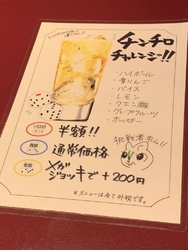 チンチロ
チャレンジ!!
・ハイボール
・青りんご
・バイス
・レモン
・クエン酸
・グレープフルーツ
・ホッピー
挑戦者求ム!!
半額!!
通常価格
メガ
ジョッキで +200円
※メニューは全て外税です。